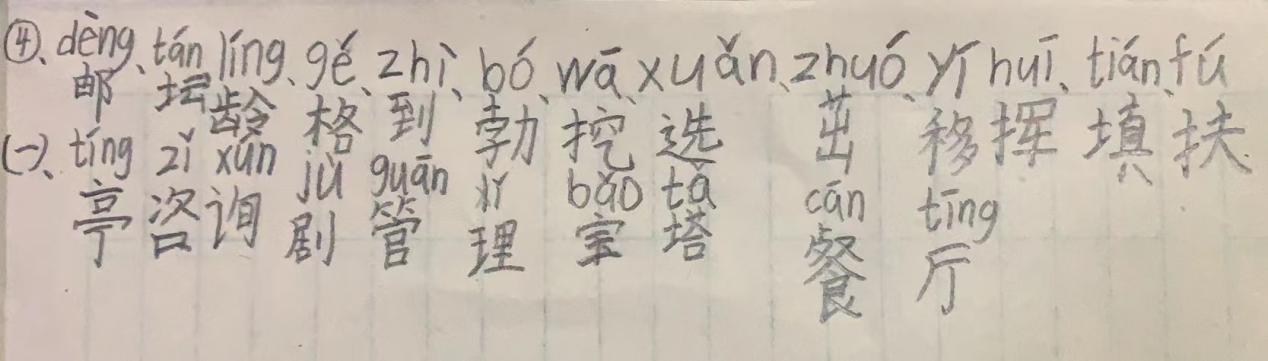 ④、dèng、tán líng、gé、zhì、bó、wā、xuǎn、zhuó、yí huī、tián、fú
邮 坛 龄 格 到 勃 挖 选 茁 移 挥 填 扶
(一)、tíng zī xún jù guān lǐ bǎo tǎ cān tīng
亭 咨 询 剧 管 理 宝 塔 餐 厅